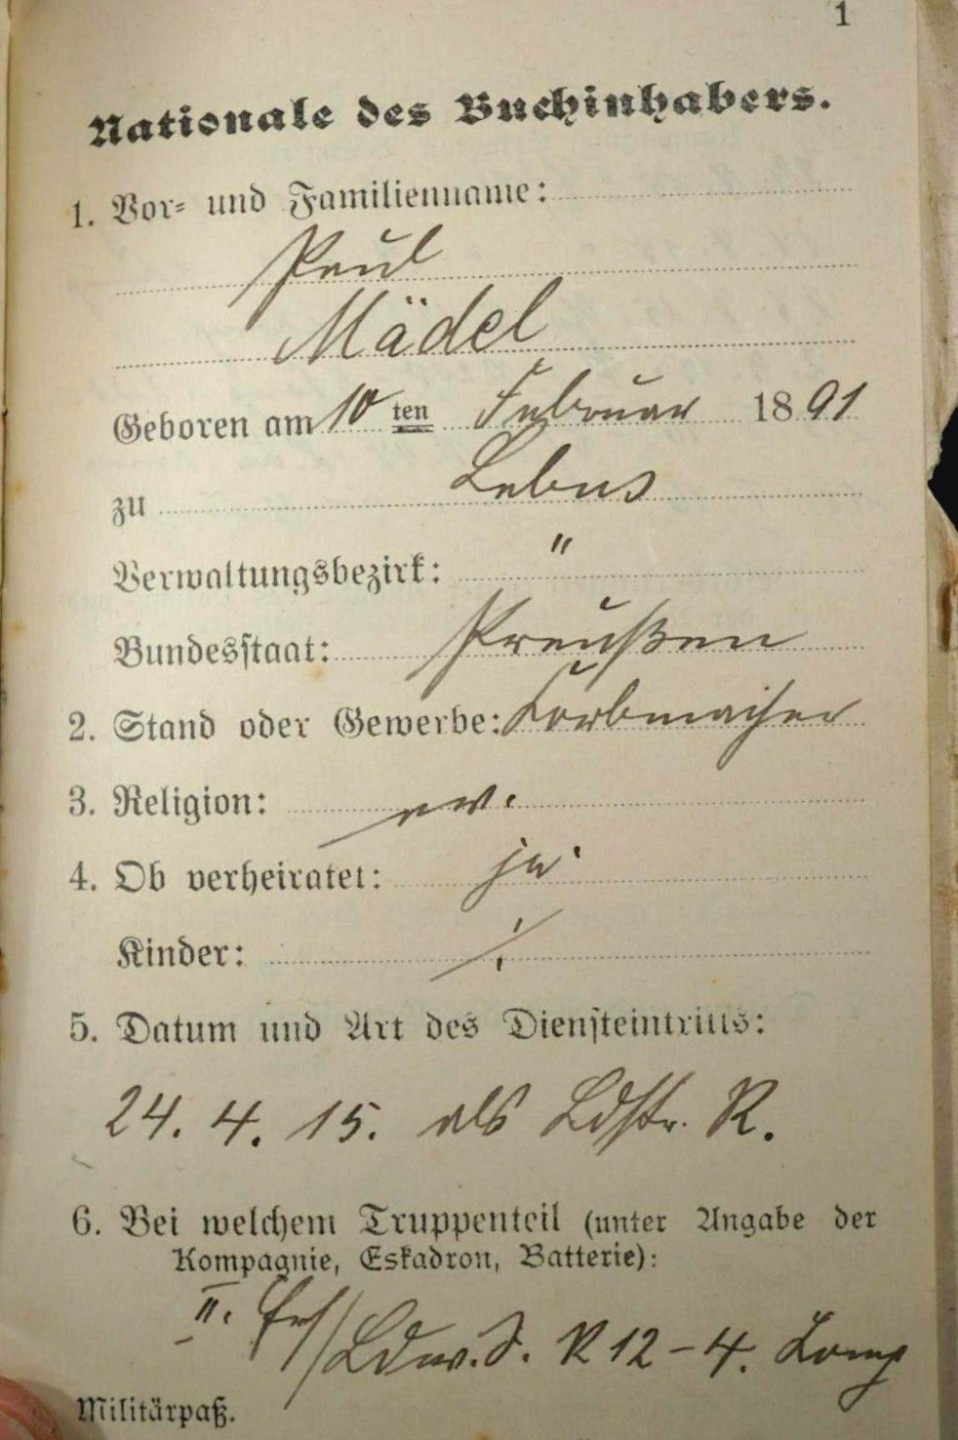 1
Nationale des Buchinhabers.
1. Vor- und Familienname:
Paul
Mädel
Geboren am 10 ten Februar 1891
zu Lebus
Verwaltungsbezirk: "
Bundesstaat: Preußen
2. Stand oder Gewerbe: Korbmacher
3. Religion: ev.
4. Ob verheiratet: ja.
Kinder: ⁒
5. Datum und Art des Diensteintritts:
24. 4. 15. als Ldstr. R.
6. Bei welchem Truppenteil (unter Angabe der
Kompagnie, Eskadron, Batterie):
II. Ers/Ldw. I. R 12 - 4. Komp
Militärpaß.